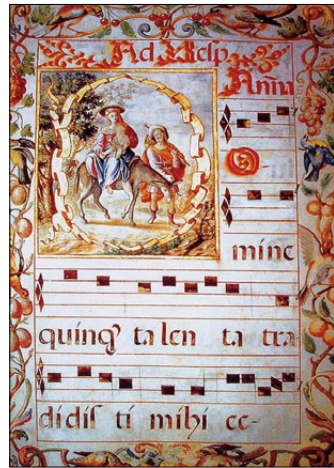 Ad Vesp.
Anña
mine
quinq̃ ta len ta tra-
didis ti mihi ec-